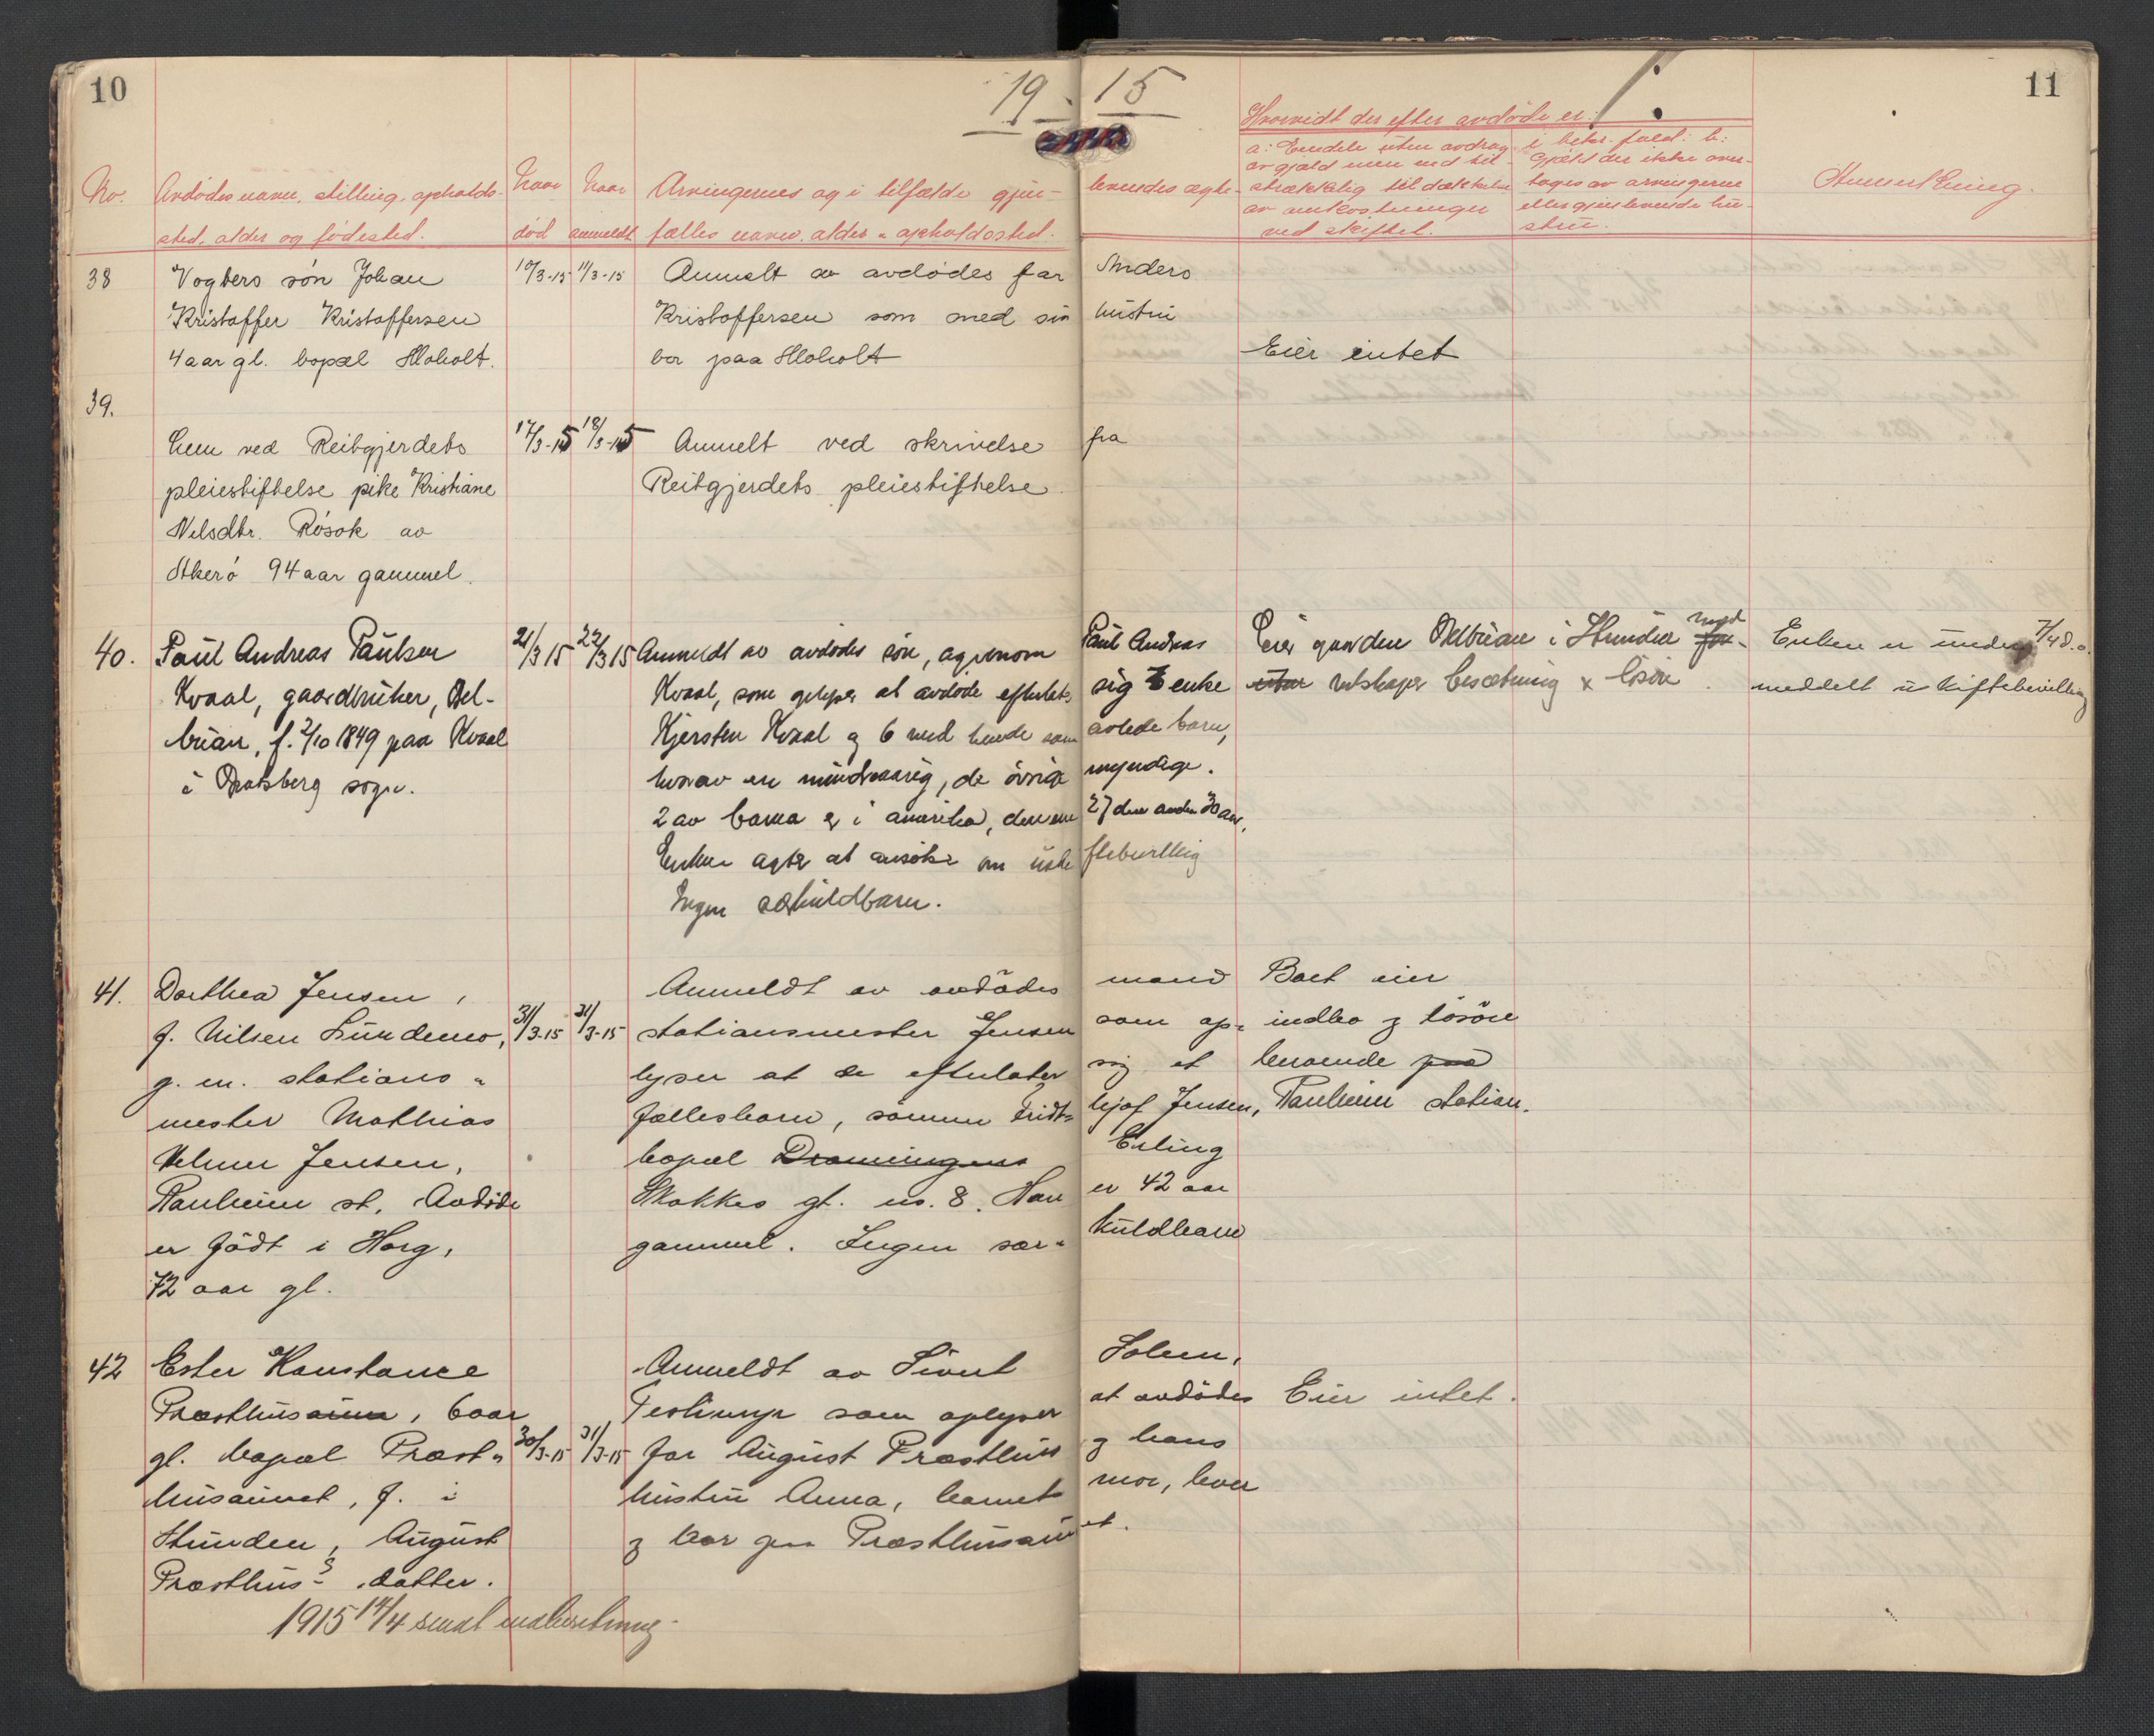 10
19 15
11
No. Avdødes navn, stilling, opholds- Naar Naar Arvingernes og i tilfælde gjen- levendes ægte-
sted, alder og fødested. død anmeldt fælles navn, alder & opholdssted.
Hvorvidt der efter avdøde er:
a: Eiendele uten avdrag i bekr. fald: b:
av gjæld men end til- Gjæld der ikke over-
strækkelig til dækkelse tages av arvingerne
av omkostninger eller gjenlevende hu-
ved skiftet. stru.
Anmerkning.
38 Vogters søn Johan 10/3-15 11/3-15 Anmelt av avdødes far Anders
Kristoffer Kristoffersen Kristoffersen som med sin hustru
4 aar gl. bopæl Moholt. bor paa Moholt Eier intet
39.
Lem ved Reitgjerdets 17/3-15 18/3-15 Anmelt ved skrivelse fra
pleiestiftelse pike Kristiane Reitgjerdets pleiestiftelse
Nilsdtr. Røsok av
Akerø 94 aar gammel.
40. Paul Andreas Paulsen 21/3 15 22/3 15 Anmeldt av avdødes søn, agronom Paul Andreas Eier gaarden Belbuan i Strinden med Enken er under 7/4 d.a.
Kvaal, gaardbruker, Bel- Kvaal, som oplyser at avdøde efterlot sig enke uten redskaper besætning & løsøre. meddelt uskiftebevilling
buan, f. 2/10 1849 paa Kvaal Kjersten Kvaal og 6 med hende som avlede barn,
i Bratsberg sogn. hvorav en mindreaarig, de øvrige myndige.
2 av barna er i amerika, den ene 27 den anden 30 aar.
Enken agter at ansøke om uskiftebevilling
Ingen særkuldbarn.
41. Dorthea Jensen, Anmeldt av avdødes mand Boet eier
f. Nilsen Lundemo, 31/3-15 31/3-15 stationsmester Jensen som op- indbo & løsøre
g. m. stations- lyser at de efterlater sig et beroende paa
mester Mathias fællesbarn, sønnen Fridt- hjof Jensen, Ranheim station.
Velmer Jensen, bopæl Dronningens Erling
Ranheim st. Avdøde Skakkes gt. no. 8. Han er 42 aar
er født i Horg, gammel. Ingen sær- kuldbarn
72 aar gl.
42 Ester Konstance Anmeldt av Sivert Solem,
Præsthusaune, 6 aar Testrup som oplyser at avdødes Eier intet.
gl. bopæl Præst- 30/3-15 31/3-15 far August Præsthus & hans
husaunet, f. i hustru Anna, barnets mor, lever
Strinden, August & bor paa Præsthusaunet.
Præsthus's datter.
1915 14/4 sendt indberetning.